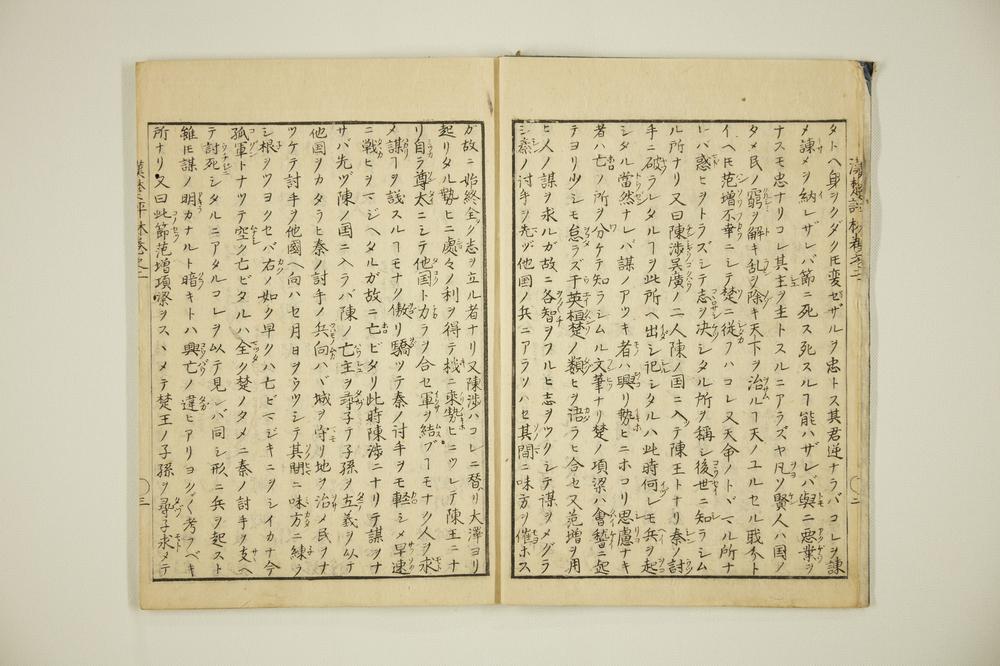 タトヘ身ヲクダクヒ変ゼザルヲ忠トス其君逆ナラバコレヲ諫
メ諫メヲ納レザレバ節ニ死ス死スルヿ能ハザレバ與ニ悪業ヲ
ナスモ忠ナリコレ其主ヲ主トスルニアラズヤ凡ソ賢人ハ国ノ
タメ民ノ窮ヲ解キ乱ヲ除キ天下ヲ治ルヿ天ノユルセル職分ト
イヘ𪜈范増不幸ニシテ楚ニ従フハコレ又天命ノトヾマル所ナ
レバ惑ヒヲトラズシテ志ヲ决シタル所ヲ稱シ後世ニ知ラシム
ル所ナリ又曰陳渉呉廣ノ二人陳ノ国ニ入テ陳王トナリ秦ノ討
手ニ破ラレタルヿヲ此所ヘ出シ記シタルハ此時何レモ兵ヲ起
シタル當然ナレバ謀ノアツキ者ハ興リ勢ヒニホコリ思慮ナキ
者ハ亡ノ所ヲ分ケテ知ラシムル文華ナリ楚ノ項梁ハ會稽ニ起
テヨリ少シモ怠ラズ于英桓楚ノ類ヒヲ語ラヒ合セ又范増ヲ用
ヒ人ノ謀ヲ求ルガ故ニ各智ヲフルヒ志ヲツクシテ謀ヲメグラ
シ秦ノ討手ヲ先ヅ他国ノ兵ニアラソハセ其間ニ味方ヲ催ホス
ガ故ニ始終全ク志ヲ立ル者ナリ又陳渉ハコレニ替リ大澤ヨリ
起リタル勢ヒニ處々ノ利ヲ得テ機ニ乗勢ヒニツレテ陳王ニナ
リ自ラ尊大ニシテ他国ト力ラヲ合セ軍ヲ結ブヿモナク人ヲ求
メ謀ヿヲ議スルヿモナク傲リ驕ツテ秦ノ討手ヲモ軽シメ早速
ニ戦ヒヲマジヘタルガ故ニ亡ビタリ此時陳渉ニナリテ謀ヲナ
サバ先ヅ陳ノ国ニ入ラバ陳ノ亡主ヲ尋子テ子孫ヲ立義ヲ以テ
他国ヲカタラヒ秦ノ討手ノ兵向ハヾ城ヲ守リ地ヲ治メ民ヲナ
ツケテ討手ヲ他國ヘ向ハセ月日ヲウツシテ其間ニ味方ニ練ラ
シ根ヲツヨクセバ右ノ如ク早クハ亡ビマジキニヲシイカナ今
孤軍トナツテ空ク亡ビタルハ全ク楚ノタメニ秦ノ討手ヲ支ヘ
テ討死シタルニアタルコレヲ以テ見レバ同シ形ニ兵ヲ起スト
雖𪜈謀ノ明カナルト暗キトハ興亡ノ違ヒアリヨク〱考フベキ
所ナリ又曰此節范増項梁ヲスヽメテ楚王ノ子孫ヲ尋子求メテ